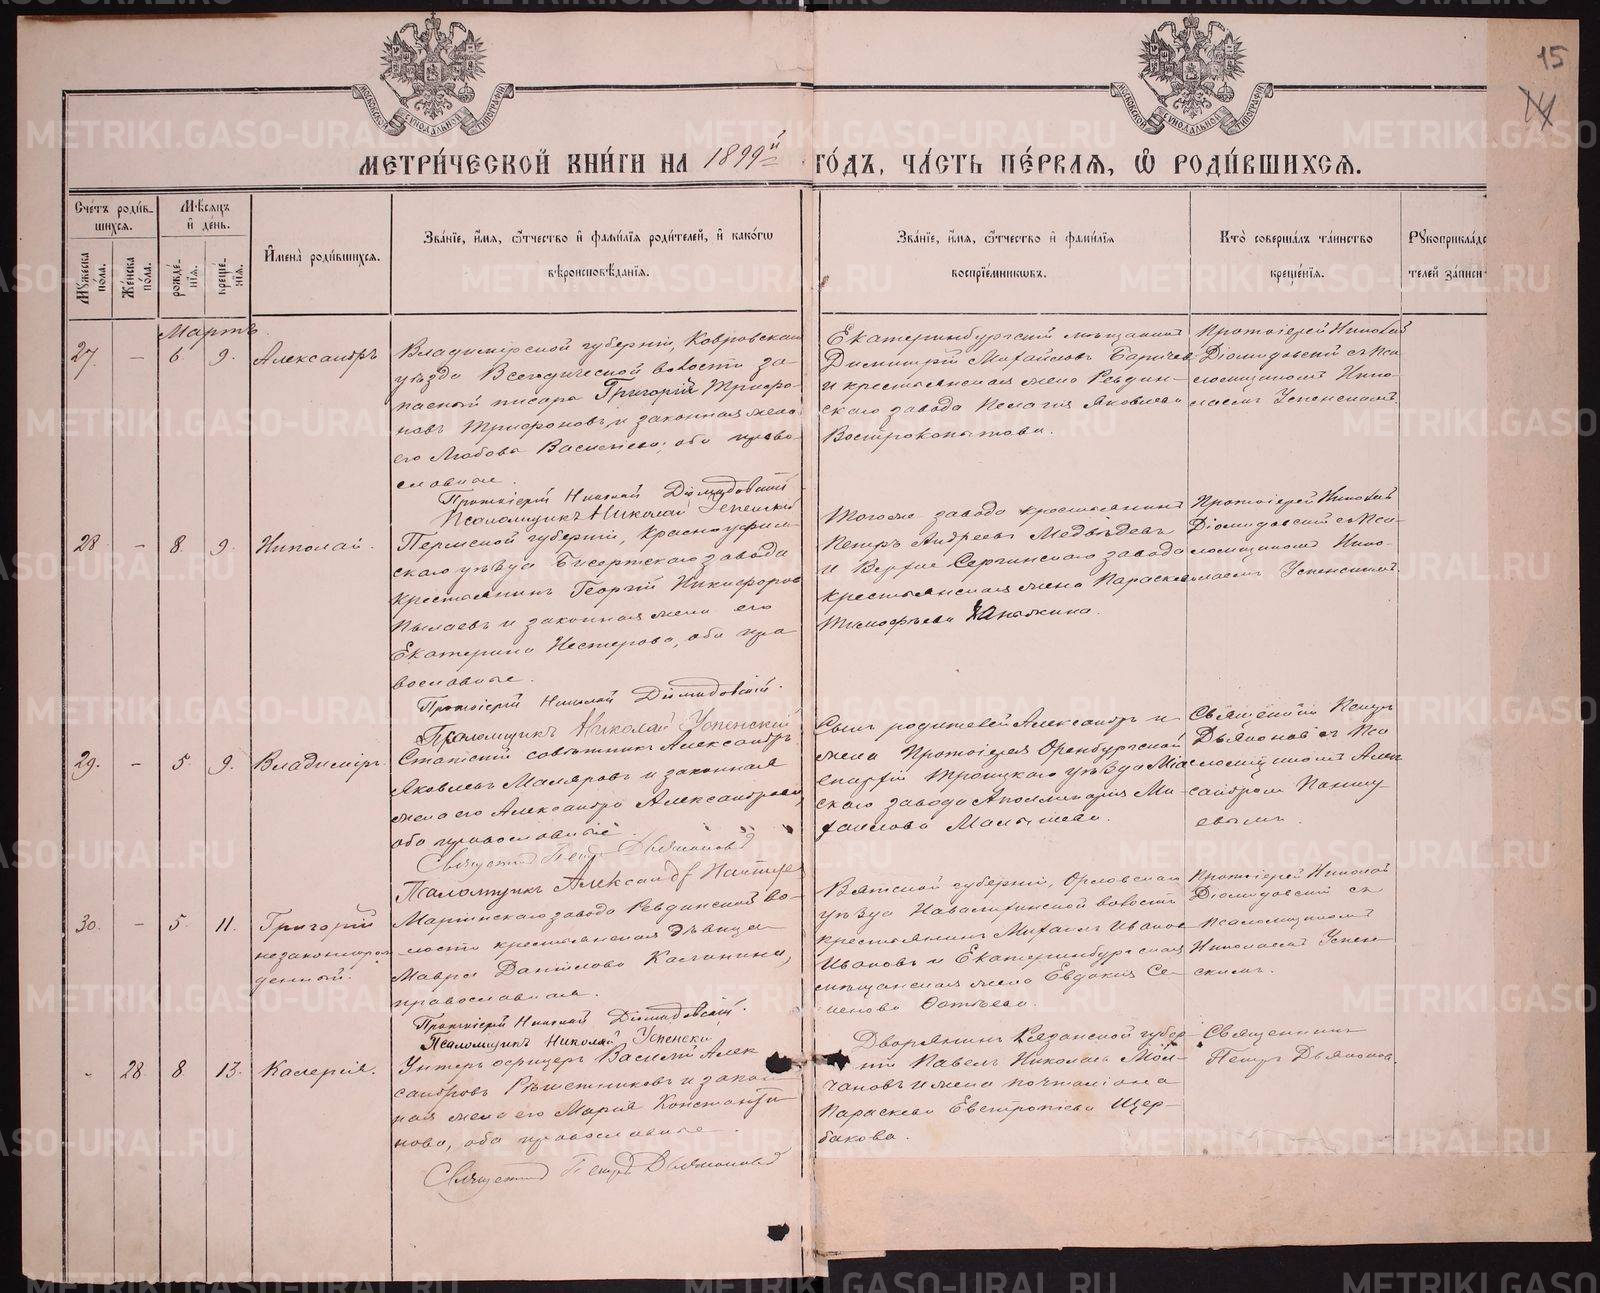 15
14
МЕТРИЧЕСКОЙ КНИГИ НА 1899й ГОДЪ, ЧАСТЬ ПЕРВАЯ, Ѿ РОДИВШИХСЯ.
МОСКОВСКОЙ СѴНОДАЛЬНОЙ ТИПОГРАФІИ
МОСКОВСКОЙ СѴНОДАЛЬНОЙ ТИПОГРАФІИ
Счетъ родив-
шихся.
Мужеска пола.
Женска пола.
Мѣсяцъ
и день.
рожде-
нія.
креще-
нія.
Имена родившихся.
Званіе, имя, отчество и фамилія родителей, и какогω
вѣроисповѣданія.
Званіе, имя, отчество и фамилія
воспріемниковъ.
Кто совершалъ таинство
крещенія.
Рукоприклад
телей записи
Мартъ.
27. – 6 9. Александръ
Владимірской губерніи, Ковровскаго
уѣзда Всегодической волости за-
пасный писарь Григорій Трифо-
новъ Трифоновъ и законная жена
его Любовь Васильева, оба право-
славные.
Протоіерей Николай Діомидовскій
Псаломщикъ Николай Успенскій
Екатеринбургскій мѣщанинъ
Димитрій Михайловъ
и крестьянская жена Ревдин-
скаго завода Пелагія Яковлева
Вострокопытова.
Протоіерей Николай
Діомидовскій съ пса-
ломщикомъ Нико-
лаемъ Успенскимъ
28 – 8. 9. Николай.
Пермской губерніи, Красноуфим-
скаго уѣзда Бисертскаго завода
крестьянинъ Георгій Никифоровъ
Пылаевъ и законная жена его
Екатерина Нестерова, оба пра-
вославные.
Протоіерей Николай Діомидовскій.
Псаломщикъ Николай Успенскій
Тогоже завода крестьянинъ
Петръ Андреевъ Медвѣдевъ
и Верхне Сергинскаго завода
крестьянская жена Параскева
Тимофѣева
Протоіерей Николай
Діомидовскій съ пса-
ломщикомъ Нико-
лаемъ Успенскимъ.
29. – 5 9. Владиміръ.
Статскій совѣтникъ Александръ
Яковлевъ Маляровъ и законная
жена его Александра Александрова,
оба православные.
Священникъ Петръ Дьяконовъ
Псаломщикъ Александръ
Сынъ родителей Александръ и
жена Протоіерея Оренбургской
епархіи Троицкаго уѣзда Міас-
скаго завода Аполлинарія Ми-
хаилова Малышева.
Священникъ Петръ
Дьяконовъ съ пса-
ломщикомъ Алек-
сандромъ
евымъ.
30. – 5. 11. Григорій
незаконнорож-
денный.
Маріинскаго завода Ревдинской во-
лости крестьянская дѣвица
Мавра Данилова Калинина,
православная.
Протоіерей Николай Діомидовскій.
Псаломщикъ Николай Успенскій
Вятской губерніи, Орловскаго
уѣзда волости
крестьянинъ Михаилъ Ивановъ
Ивановъ и Екатеринбургская
мѣщанская жена Евдокія Се-
менова
Протоіерей Николай
Діомидовскій съ
псаломщикомъ
Николаемъ Успен-
скимъ.
- 28 8 13. Калерія.
Унтеръ офицеръ Василій Алек
сандровъ Рѣшетниковъ и закон
ная жена его Марія Константи
нова, оба православные.
Священникъ Петръ Дьяконовъ
Дворянинъ Рязанской губер-
ніи Павелъ Николаевъ Мол-
чановъ и жена почталіона
Параскева Евстропіева Щер-
бакова.
Священникъ
Петръ Дьяконовъ.
METRIKI.GASO-URAL.RU